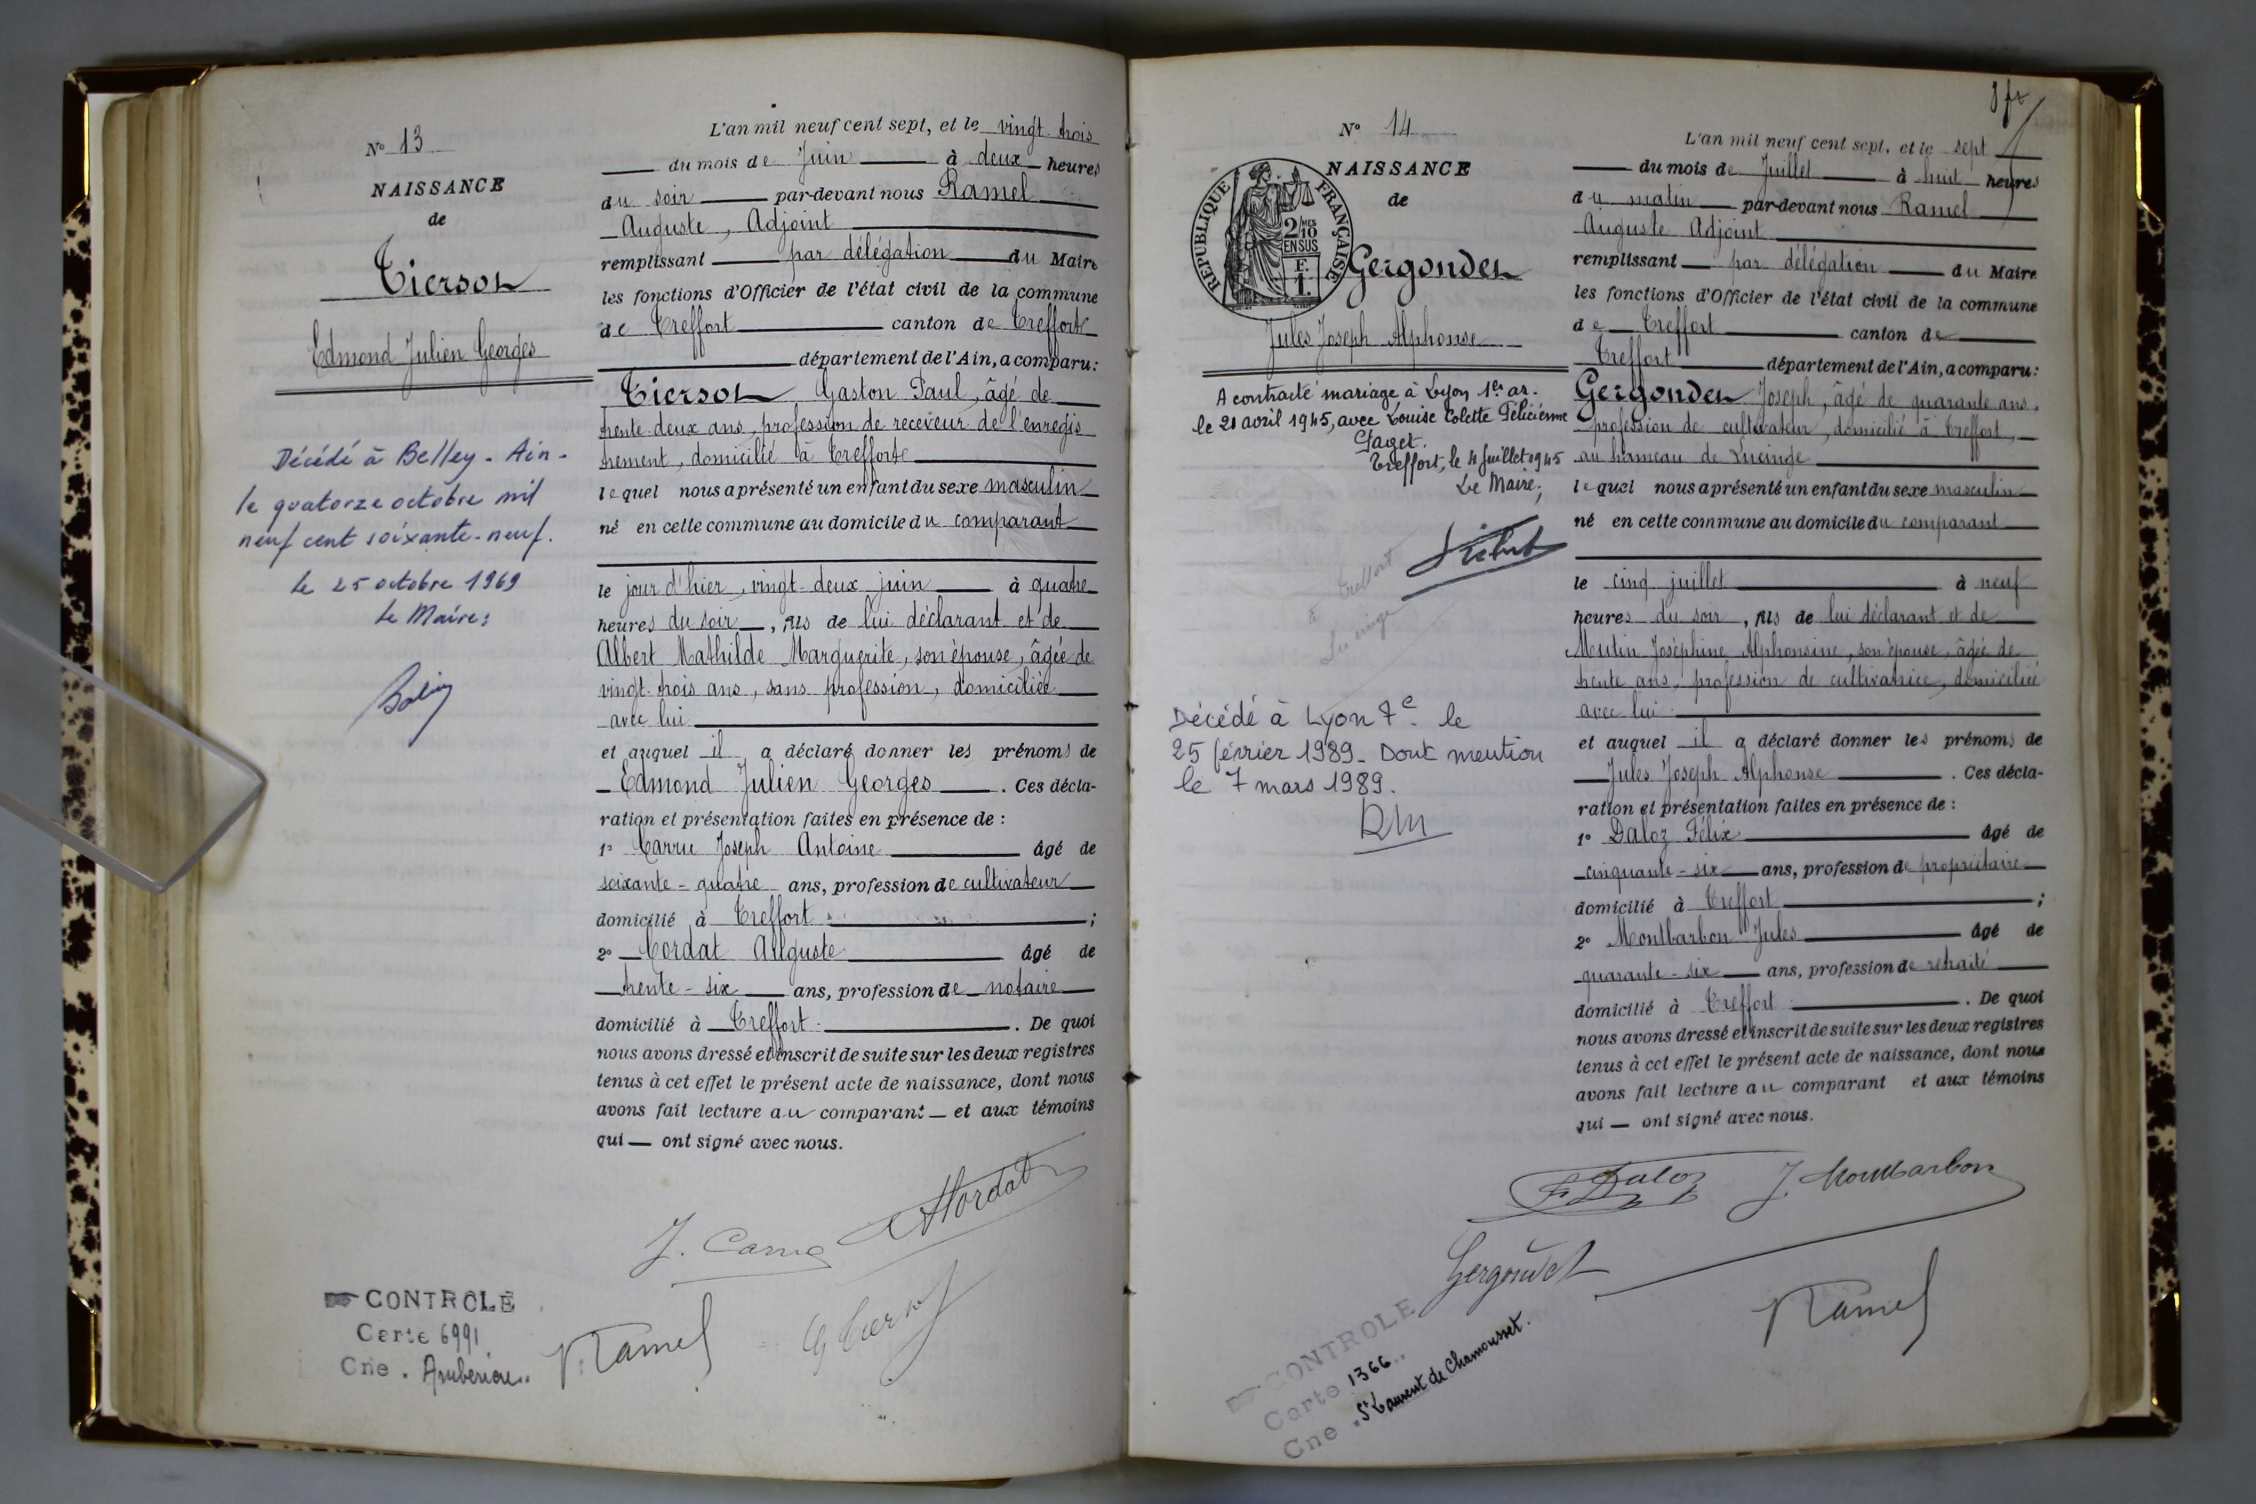 N° 13
NAISSANCE
de
Tiersot
Edmond Julien Georges
Décédé à Belley - Ain -
le quatorze octobre mil
neuf cent soixante-neuf.
Le 25 octobre 1969
Le Maire:
CONTROLÉ
Carte 6991
Cne. Ambérieu
L'an mil neuf cent sept, et le vingt-trois
du mois de Juin à deux heures
du soir par-devant nous Ramel
Auguste, Adjoint
remplissant par délégation du Maire
les fonctions d'Officier de l'état civil de la commune
de Treffort canton de Treffort
département de l'Ain, a comparu:
Tiersot Gaston Paul, âgé de
trente-deux ans, profession de receveur de l'enregis
trement, domicilié à Treffort
lequel nous a présenté un enfant du sexe masculin
né en cette commune au domicile du comparant
le jour d'hier, vingt-deux juin à quatre
heures du soir, fils de lui déclarant et de
Albert Mathilde Marguerite, son épouse, âgée de
vingt-trois ans, sans profession, domiciliée
avec lui
et auquel il a déclaré donner les prénoms de
Edmond Julien Georges. Ces décla-
ration et présentation faites en présence de:
1° Carru Joseph Antoine âgé de
soixante-quatre ans, profession de cultivateur
domicilié à Treffort;
2° Cordat Auguste âgé de
trente-six ans, profession de notaire
domicilié à Treffort. De quoi
nous avons dressé et inscrit de suite sur les deux registres
tenus à cet effet le présent acte de naissance, dont nous
avons fait lecture au comparant et aux témoins
qui ont signé avec nous.
J. Carru ACordat
Ramel G Tiersot
N° 14
NAISSANCE
de
RÉPUBLIQUE FRANÇAISE
2/10 MES
EN SUS
F.
1.
Gergondet
Jules Joseph Alphonse
A contracté mariage à Lyon 1er ar.
le 21 avril 1945, avec Louise Colette Félicienne
Gazet.
Treffort, le 4 juillet 1945
Le Maire,
à Treffort
Lucinge
Décédé à Lyon 7e le
25 février 1989. Dont mention
le 7 mars 1989.
CONTROLE
Carte 1366
Cne. St Laurent de Chamousset.
L'an mil neuf cent sept, et le sept
du mois de Juillet à huit heures
du matin par-devant nous Ramel
Auguste Adjoint
remplissant par délégation du Maire
les fonctions d'Officier de l'état civil de la commune
de Treffort canton de
Treffort département de l'Ain, a comparu:
Gergondet Joseph, âgé de quarante ans,
profession de cultivateur, domicilié à Treffort,
au hameau de Lucinge
lequel nous a présenté un enfant du sexe masculin
né en cette commune au domicile du comparant
le cinq juillet à neuf
heures du soir, fils de lui déclarant et de
Moutin Joséphine Alphonsine, son épouse, âgée de
trente ans, profession de cultivatrice, domiciliée
avec lui
et auquel il a déclaré donner les prénoms de
Jules Joseph Alphonse. Ces décla-
ration et présentation faites en présence de:
1° Daloz Félix âgé de
cinquante-six ans, profession de propriétaire
domicilié à Treffort;
2° Montbarbon Jules âgé de
quarante-six ans, profession de retraité
domicilié à Treffort. De quoi
nous avons dressé et inscrit de suite sur les deux registres
tenus à cet effet le présent acte de naissance, dont nous
avons fait lecture au comparant et aux témoins
qui ont signé avec nous.
F Daloz J. Montbarbon
Gergondet
Ramel